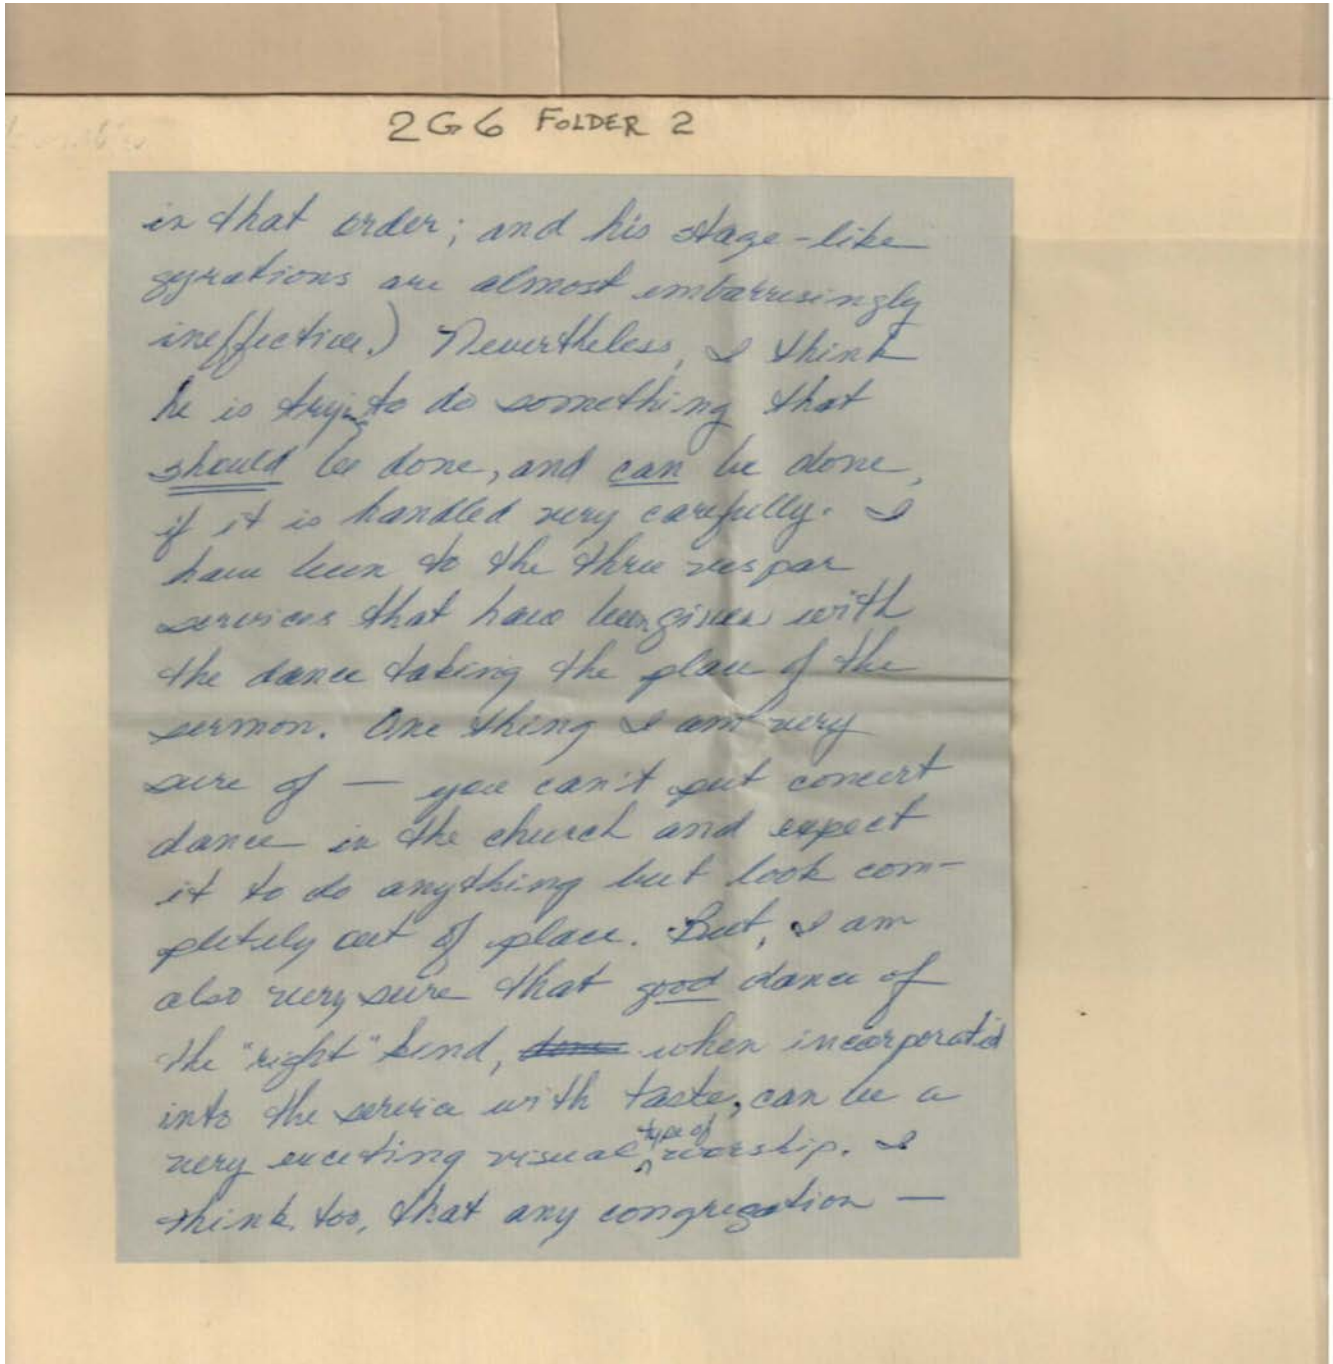 2G6 FOLDER 2
in that order; and his stage-like
gyrations are almost embarrisingly
ineffective.) Nevertheless, I think
he is trying to do something that
should be done, and can be done,
if it is handled very carefully. I
have been to the three vespar
services that have been given with
the dance taking the place of the
sermon. One thing I am very
sure of — you can't put concert
dance in the church and expect
it to do anything but look com-
pletely out of place. But, I am
also very sure that good dance of
the "right" kind, done when incorporated
into the service with taste, can be a
very exciting visual type of worship. I
think, too, that any congregation —